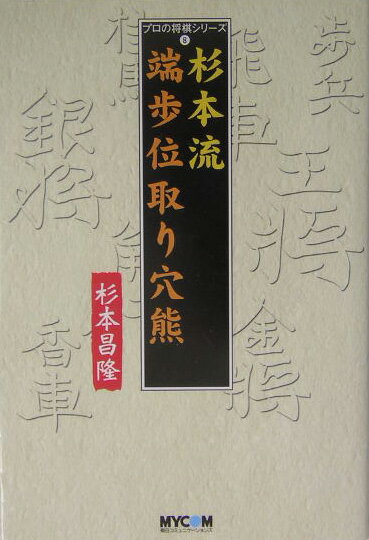 プロの将棋シリーズ
8
杉本流
端歩位取り穴熊
杉本昌隆
歩兵
飛車
王将
桂馬
銀将
角行
金将
香車
MYCOM
毎日コミュニケーションズ